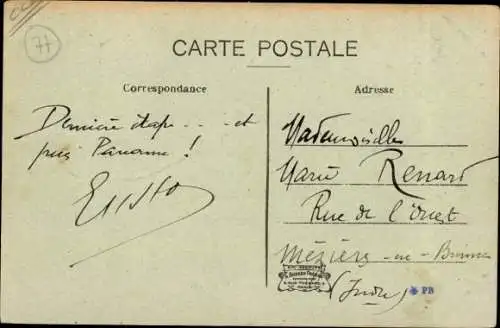 77
CARTE POSTALE
Correspondance
Adresse
Dernière étape . . . . et
puis Paname !
Mademoiselle
Marie Renard
Rue de l'Ouest
Mézières-en-Brenne
(Indre)
PB